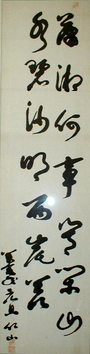 瀟湘何事等閑回
水碧沙明兩岸苔